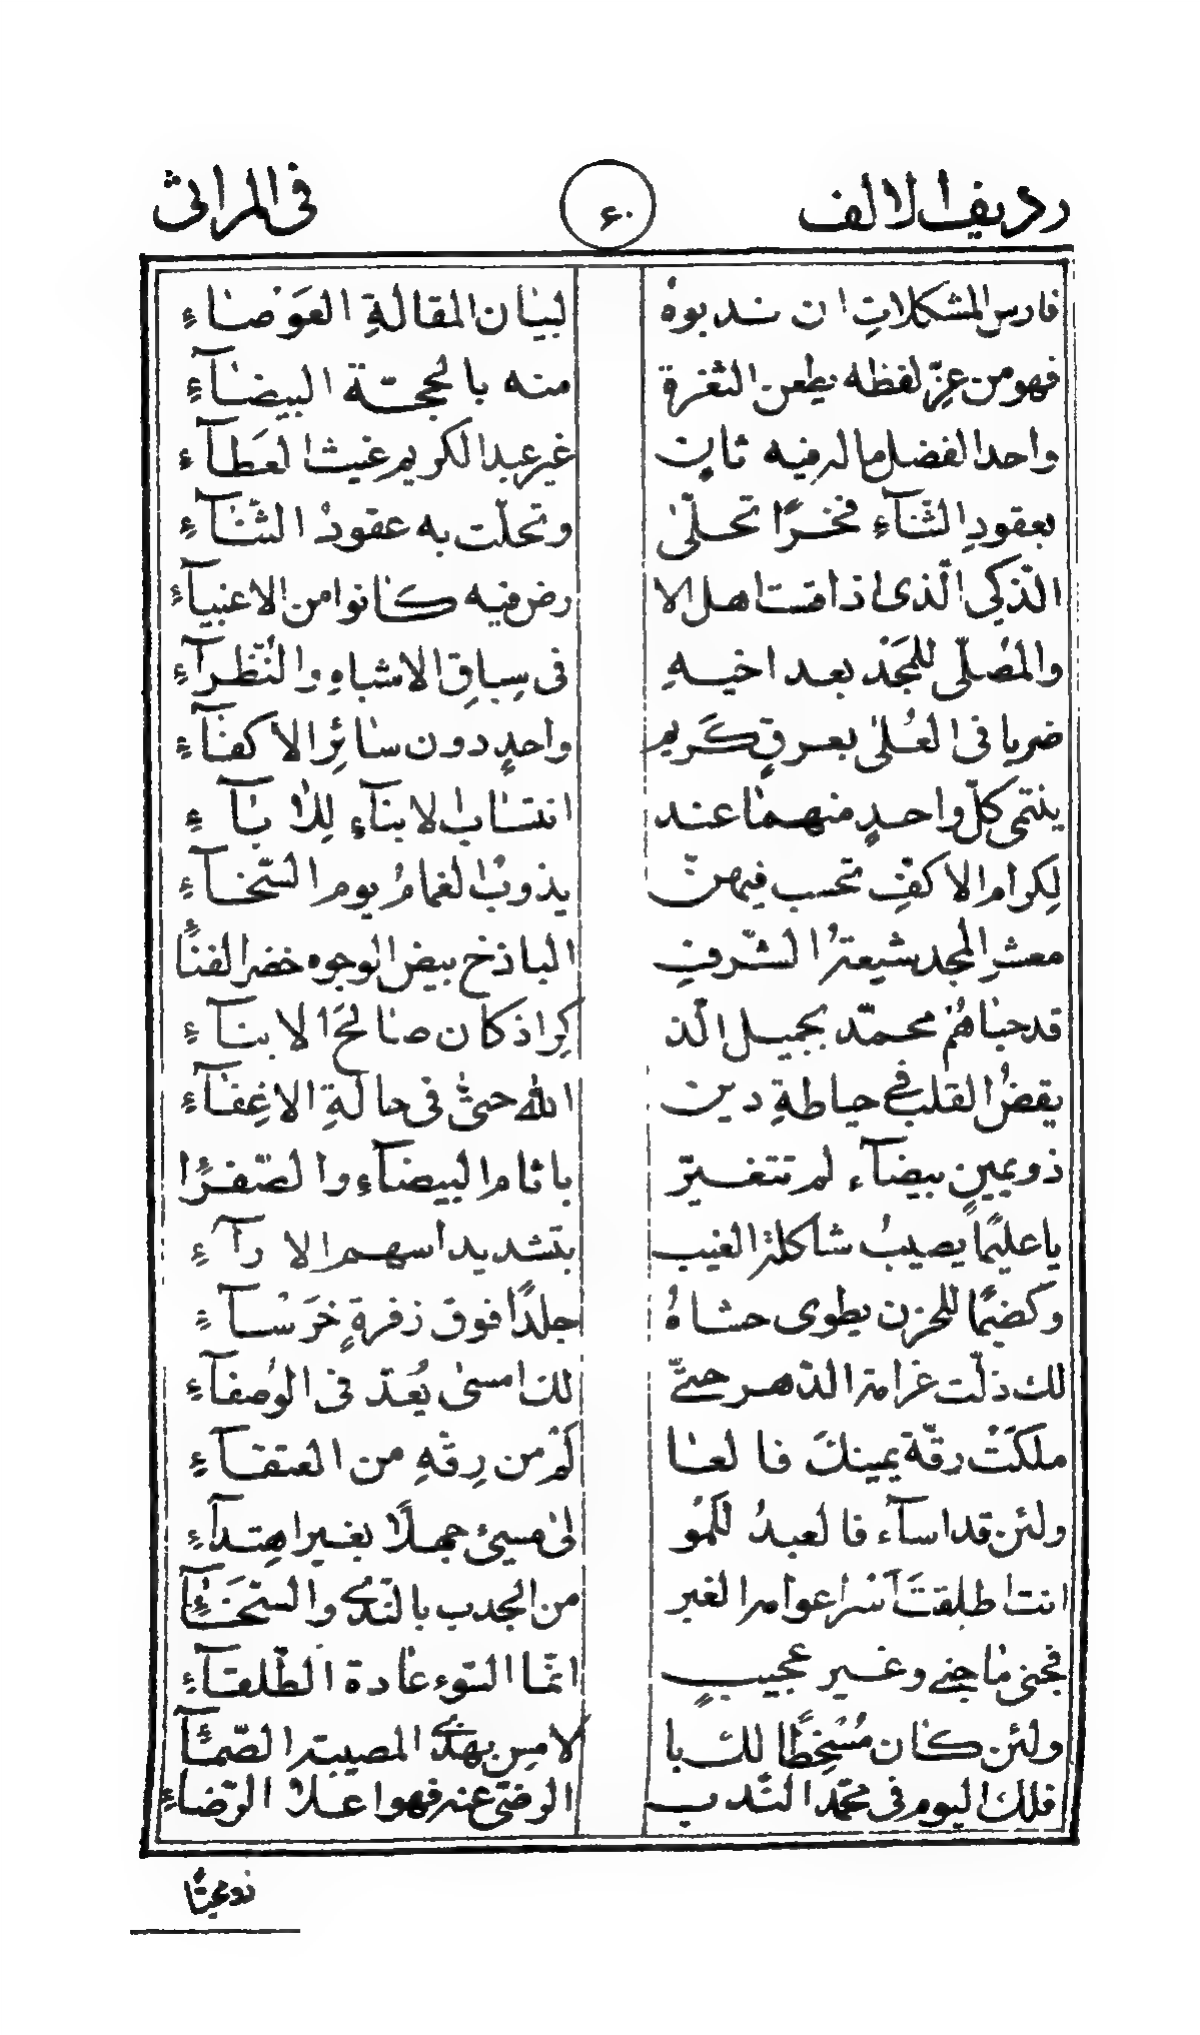 رديف الالف ٦٠ فى المراثى
فارس المشكلاتِ ان ندبوهُ لبيان المقالةِ العَوْصاءِ
فهو من عِزّ لفظه يطعن الثغرة منه بالحجّة البيضآءِ
واحد الفضل ما له فيه ثانٍ غير عبد الكريم غيث العَطآءِ
بعقودِ الثنآءِ فخرًا تحلّىٰ وتحلّت به عقودُ الثّنآءِ
الذّكي الّذى اذا قستَ اهل الا رض فيه كانوا من الاغبيآءِ
والمُصلّى للمجَدْ بعد اخيهِ فى سِباقِ الاشباهِ والنُظّرآءِ
ضربا فى العُلىٰ بعرقٍ كَريم واحدٍ دون سائِر الاكفآءِ
ينتمى كلّ واحدٍ منهما عند انتساب الابنآءِ لِلاٰبآءِ
لِكرام الاكفِّ تحسب فيهنّ يذوبُ الغمامُ يوم السّخآءِ
معشر المجد شيعة الشّرف الباذخ بيض الوجوه خضر الفنآءِ
قد حباهُمْ محمّد بجميل الّذ كر اذ كان صالحَ الابنآءِ
يقضُ القلب فى حياطةِ دين الله حتّٰى فى حالةِ الاغِفآءِ
ذو يمينٍ بيضآء لم تتغيّر باثام البيضآءِ والصّفرآءِ
يا عليمًا يصيبُ شاكلة الغيب بتشديد اسهم الارآءِ
وكضيمًا للحزن يطوى حشاهُ جلدًا فوق زفرةٍ خَرَسآءِ
لك ذلّت غرامة الدّهر حتّى لك امسىٰ يُعدّ فى الوُصفآءِ
ملكَتْ رقّة يمينكَ فالعا لم من رِقّهِ من العتقآءِ
ولئن قد اسآء فالعبدُ للمَو لىٰ مسيئ جهلًا بغير اهتدآءِ
انت اطلقتَ اَسْراعوامه الغبر من الجدب بالنّدىٰ والسّخآءِ
فجنى ما جنى وغير عجيبٍ انّما السّوء عادة الطّلقآءِ
ولئن كان مُسْخِطًا لك با لامس بهذى المصيبة الصّمّآءِ
فلك اليوم فى محمّد النّدب الرضىّ عنه فهو اعلا الرّضاءِ
ذو محيًّا